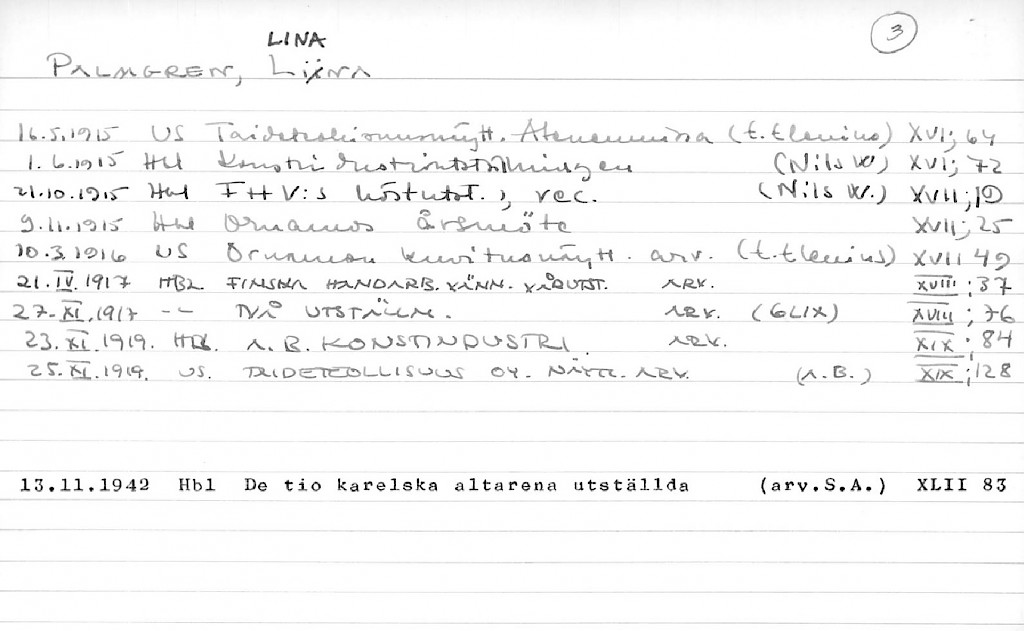 LINA
3
PALMGREN, LIINA
16.5.1915 US Taideteollisuusnäytt. Ateneumissa (E. Elenius) XVI; 64
1.6.1915 Hbl Konstindustriutställningen (Nils W) XVI; 72
21.10.1915 Hbl FHV:s höstutst.; rec. (Nils W.) XVII; 19
9.11.1915 Hbl Ornamos årsmöte XVII; 25
10.3.1916 US Ornamon kuvitusnäytt. arv. (E. Elenius) XVII 49
21.IV.1917 HBL FINSKA HANDARB. VÄNN. VÅRUTST. ARV. XVIII; 37
27.XI.1917 -"- TVÅ UTSTÄLLN. ARV. (GLIX) XVIII; 76
23.XI.1919. HBL. A.B. KONSTINDUSTRI. ARV. XIX; 84
25.XI.1919. US. TAIDETEOLLISUUS OY. NÄYTT. ARV. (A.B.) XIX; 128
13.11.1942 Hbl De tio karelska altarena utställda (arv.S.A.) XLII 83